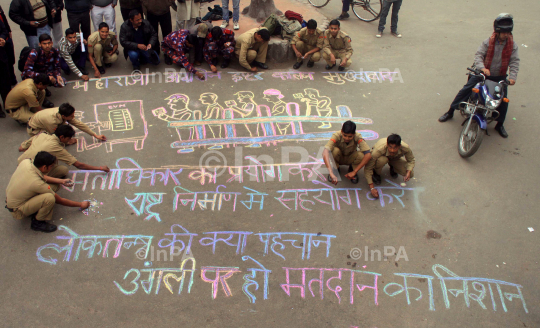 महाराजा
EVM
मताधिकार का प्रयोग करें
राष्ट्र निर्माण में सहयोग करें
लोकतन्त्र की क्या पहचान
उंगली पर हो मतदान का निशान
©InPA
©InPA
©InPA
©InPA
©InPA